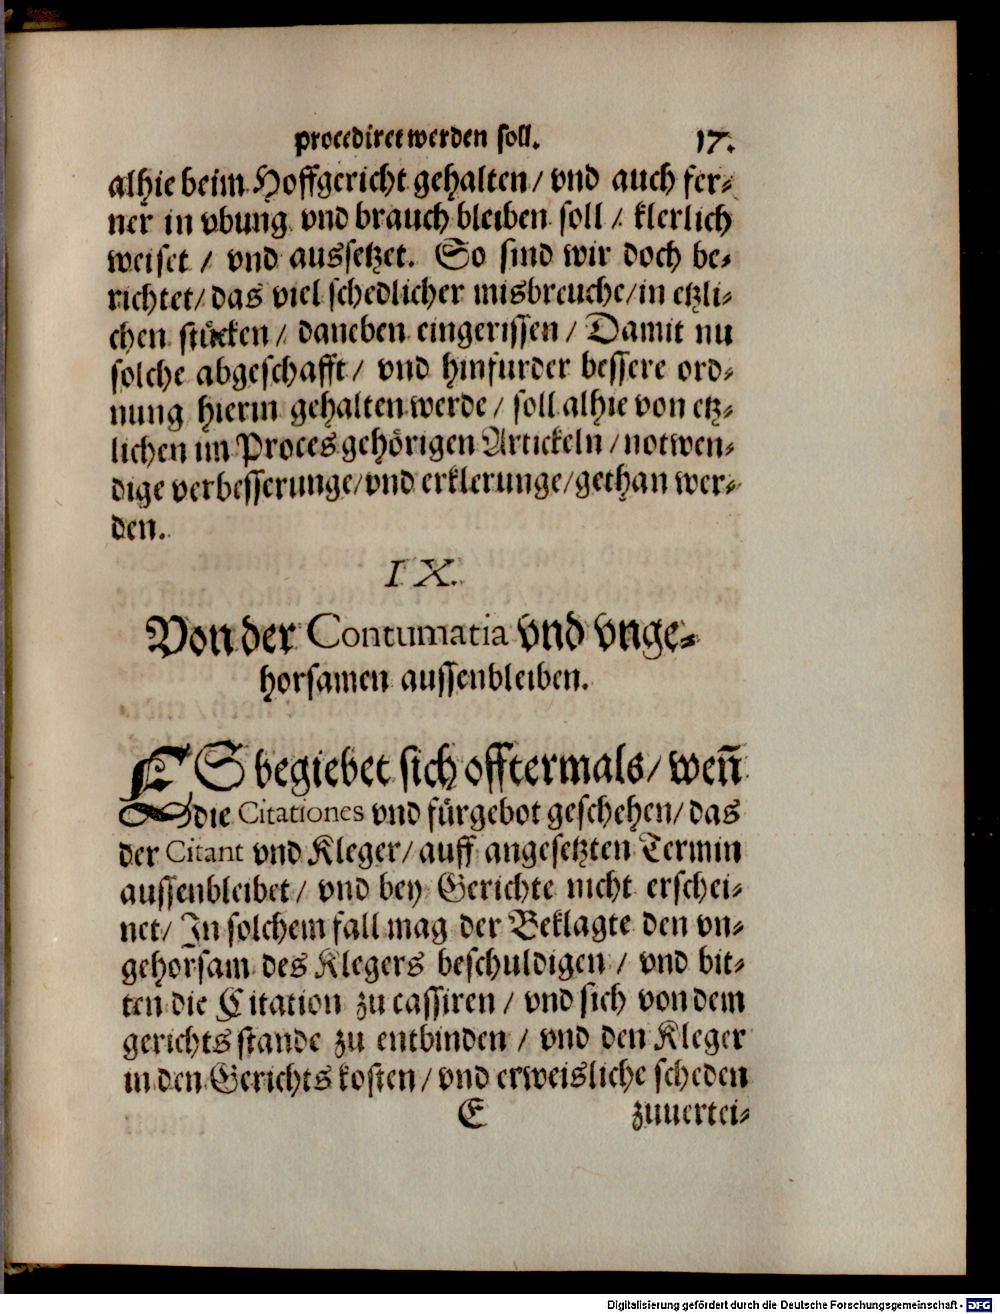 procediret werden soll. 17.
alhie beim Hoffgericht gehalten / vnd auch fer⸗
ner in vbung vnd brauch bleiben soll / klerlich
weiset / vnd aussetzet. So sind wir doch be⸗
richtet / das viel schedlicher misbreuche / in etzli⸗
chen stücken / daneben eingerissen / Damit nu
solche abgeschafft / vnd hinfurder bessere ord⸗
nung hierin gehalten werde / soll alhie von etz⸗
lichen im Proces gehörigen Artickeln / notwen⸗
dige verbesserunge / vnd erklerunge / gethan wer⸗
den.
IX.
Von der Contumatia vnd vnge⸗
horsamen aussenbleiben.
ES begiebet sich offtermals / weñ
die Citationes vnd fürgebot geschehen / das
der Citant vnd Kleger / auff angesetzten Termin
aussenbleibet / vnd bey Gerichte nicht erschei⸗
net / In solchem fall mag der Beklagte den vn⸗
gehorsam des Klegers beschuldigen / vnd bit⸗
ten die Citation zu cassiren / vnd sich von dem
gerichts stande zu entbinden / vnd den Kleger
in den Gerichts kosten / vnd erweisliche scheden
E zuuertei⸗
Digitalisierung gefördert durch die Deutsche Forschungsgemeinschaft - DFG